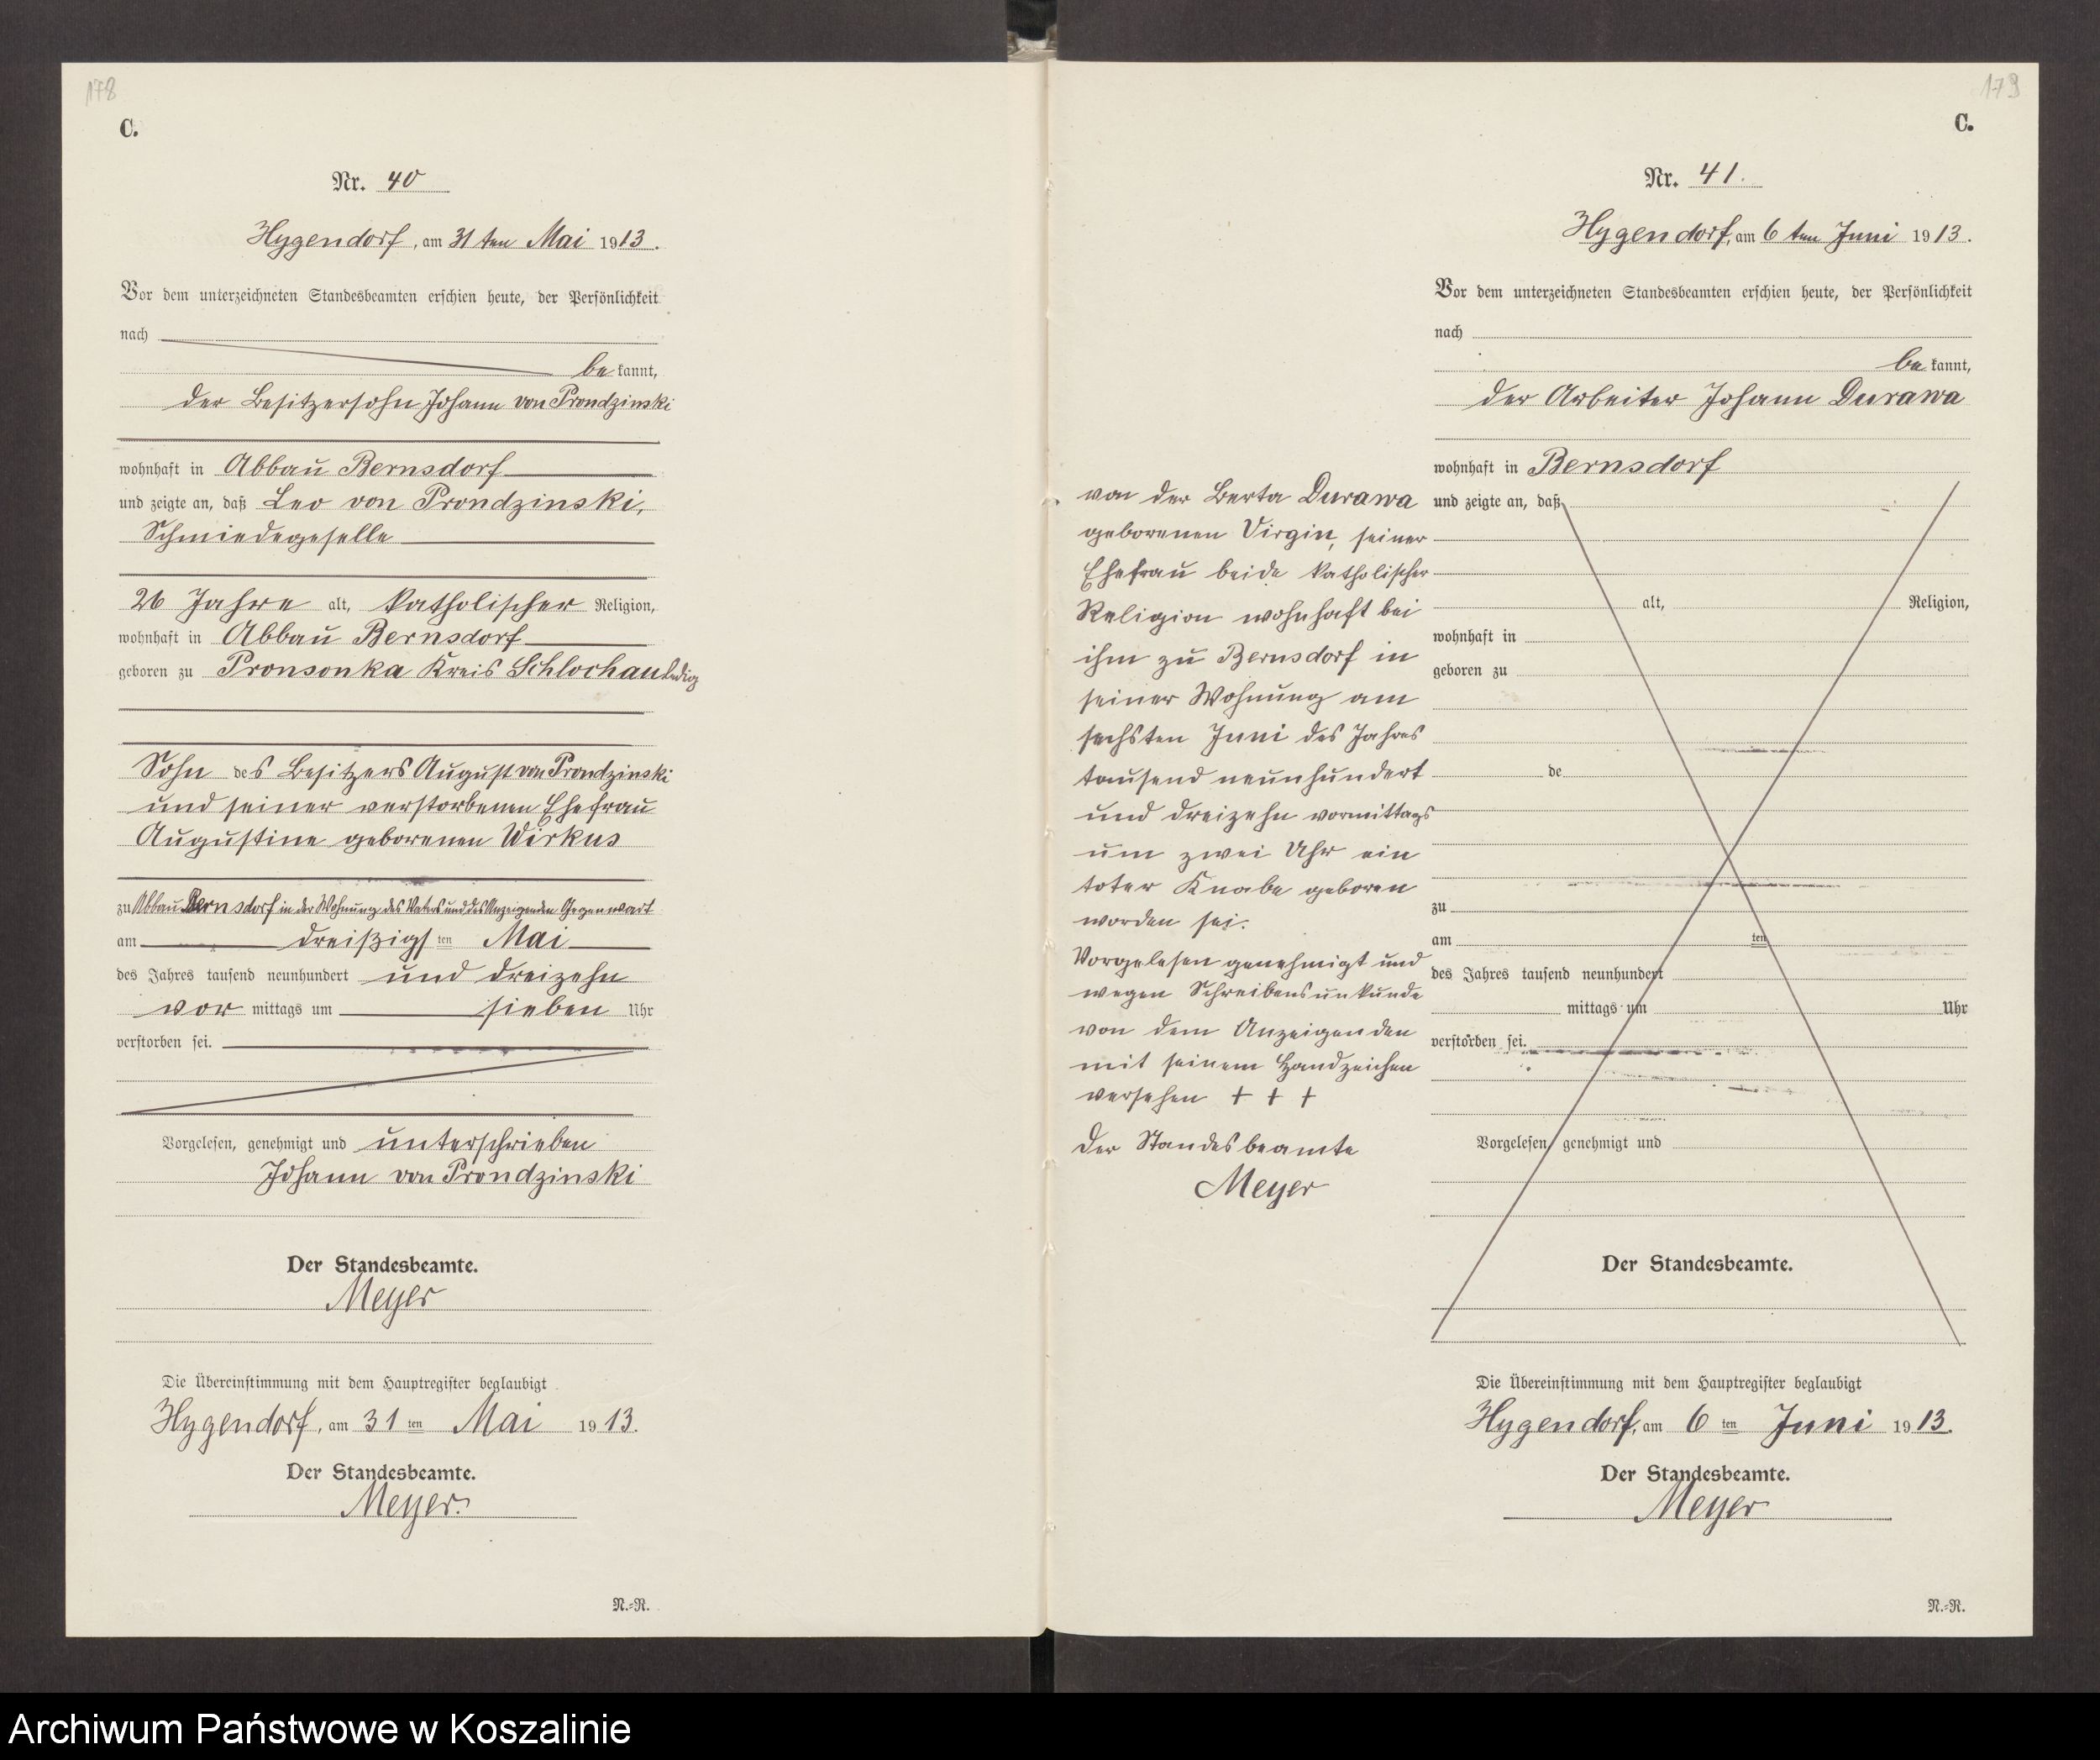 178
C.
Nr. 40
Hygendorf, am 31ten Mai 1913.
Vor dem unterzeichneten Standesbeamten erschien heute, der Persönlichkeit
nach
be kannt,
der Besitzersohn Johann von Prondzinski
wohnhaft in Abbau Bernsdorf
und zeigte an, daß Leo von Prondzinski,
Schmiedegeselle
26 Jahre alt, katholischer Religion,
wohnhaft in Abbau Bernsdorf
geboren zu Pronsonka Kreis Schlochau ledig
Sohn des Besitzers August von Prondzinski
und seiner verstorbenen Ehefrau
Augustine geborenen Wirkus
zu Abbau Bernsdorf in der Wohnung des Vaters und des Anzeigenden Gegenwart
am dreißigsten Mai
des Jahres tausend neunhundert und dreizehn
vor mittags um sieben Uhr
verstorben sei.
Vorgelesen, genehmigt und unterschrieben
Johann von Prondzinski
Der Standesbeamte.
Meyer
Die Übereinstimmung mit dem Hauptregister beglaubigt
Hygendorf, am 31 ten Mai 1913.
Der Standesbeamte.
Meyer.
N.=R.
179
C.
Nr. 41.
Hygendorf, am 6ten Juni 1913.
Vor dem unterzeichneten Standesbeamten erschien heute, der Persönlichkeit
nach
be kannt,
der Arbeiter Johann Durawa
wohnhaft in Bernsdorf
von der Berta Durawa
geborenen Virgin, seiner
Ehefrau beide katholischer
Religion wohnhaft bei
ihm zu Bernsdorf in
seiner Wohnung am
sechsten Juni des Jahres
tausend neunhundert
und dreizehn vormittags
um zwei Uhr ein
toter Knabe geboren
worden sei.
Vorgelesen genehmigt und
wegen Schreibensunkunde
von dem Anzeigenden
mit seinem Handzeichen
versehen + + +
Der Standesbeamte
Meyer
und zeigte an, daß
alt, Religion,
wohnhaft in
geboren zu
de
zu
am ten
des Jahres tausend neunhundert
mittags um Uhr
verstorben sei.
Vorgelesen, genehmigt und
Der Standesbeamte.
Die Übereinstimmung mit dem Hauptregister beglaubigt
Hygendorf, am 6 ten Juni 1913.
Der Standesbeamte.
Meyer
N.=R.
Archiwum Państwowe w Koszalinie